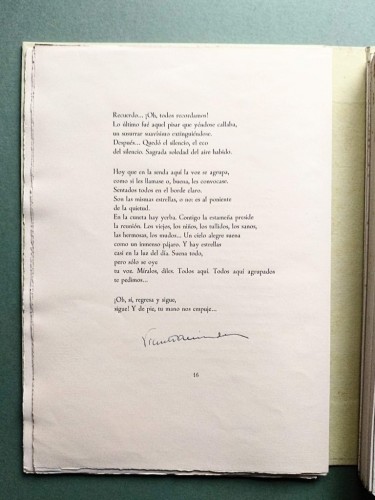 Recuerdo... ¡Oh, todos recordamos!
Lo último fué aquel pisar que yéndose callaba,
un susurrar suavísimo extinguiéndose.
Después... Quedó el silencio, el eco
del silencio. Sagrada soledad del aire habido.
Hoy que en la senda aquí la voz se agrupa,
como si les llamase o, buena, les convocase.
Sentados todos en el borde claro.
Son las mismas estrellas, o no: es al poniente
de la quietud.
En la cuneta hay yerba. Contigo la estameña preside
la reunión. Los viejos, los niños, los tullidos, los sanos,
las hermosas, los mudos... Un cielo alegre suena
como un inmenso pájaro. Y hay estrellas
casi en la luz del día. Suena todo,
pero sólo se oye
tu voz. Míralos, diles. Todos aquí. Todos aquí agrupados
te pedimos...
¡Oh, sí, regresa y sigue,
sigue! Y de pie, tu mano nos empuja...
16